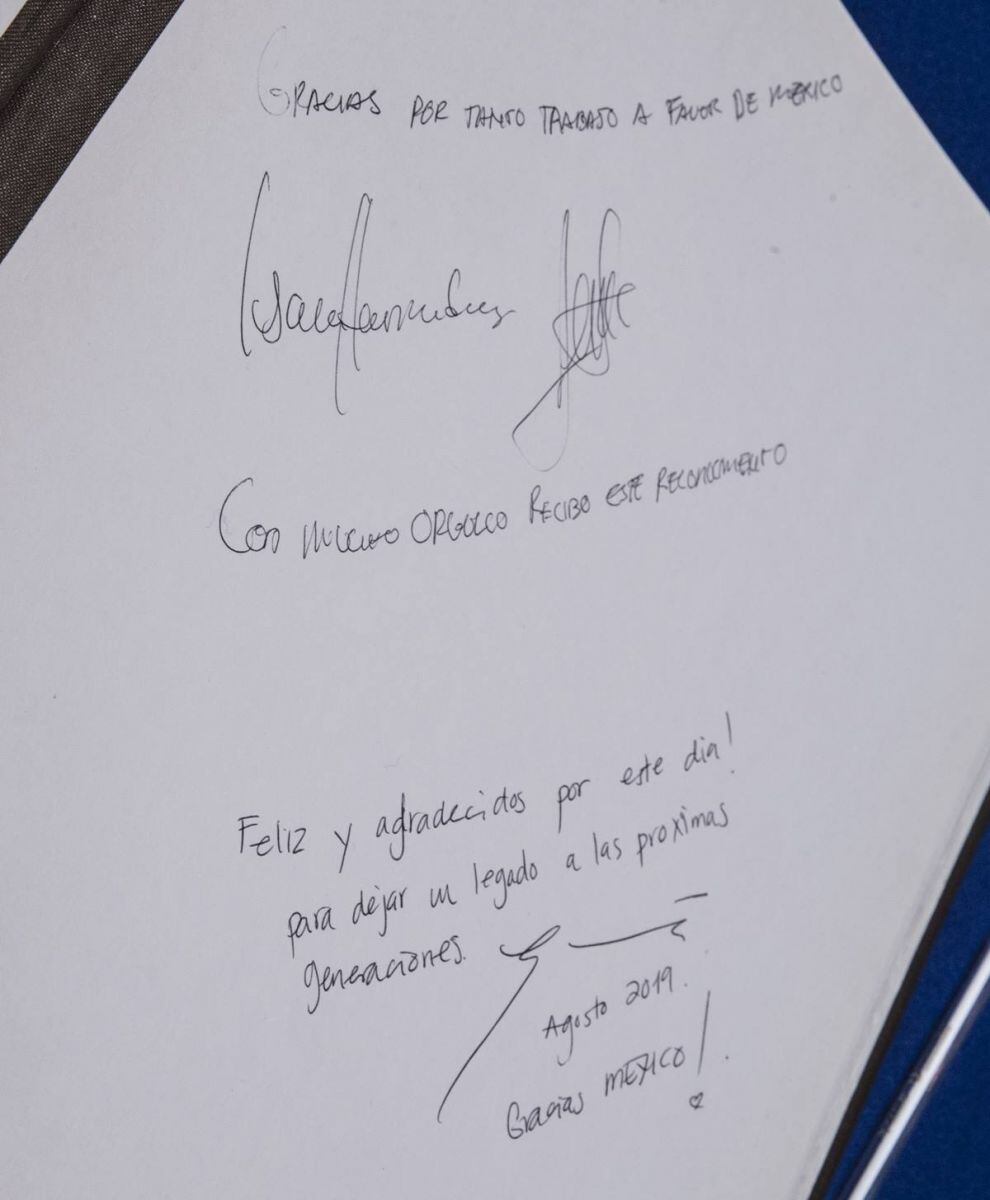 GRACIAS POR TANTO TRABAJO A FAVOR DE MEXICO
Isaac Hernandez
CON MUCHO ORGULLO RECIBO ESTE RECONOCIMIENTO
Feliz y agradecidos por este dia!
para dejar un legado a las proximas
generaciones.
Agosto 2019.
Gracias MEXICO!